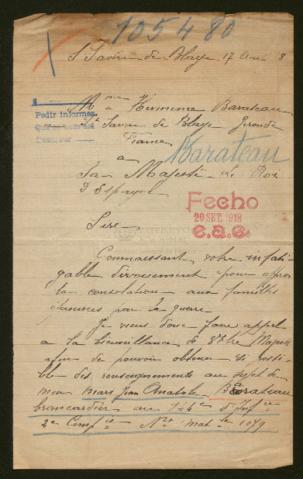 105480
St Savin de Blaye 17 Aout 8
Pedir informes
Mme Herminie Barateau
St Savin de Blaye Gironde
France
Barateau
a
Sa Majesté le Roi
d'Espagne
Fecho
20 SET. 1918
e.a.e.
Sire.
Connaissant votre infati-
gable dévouement pour apporter
la consolation aux familles
éprouvées par la guerre
Je viens donc faire appel
a la bienveillance de Votre Majesté
afin de pouvoir obtenir si possi-
ble des renseignements au sujet de
mon mari Jean Anatole Barateau
brancardier au 144e d'Infie
2e Comp. ie No mat. le 1079